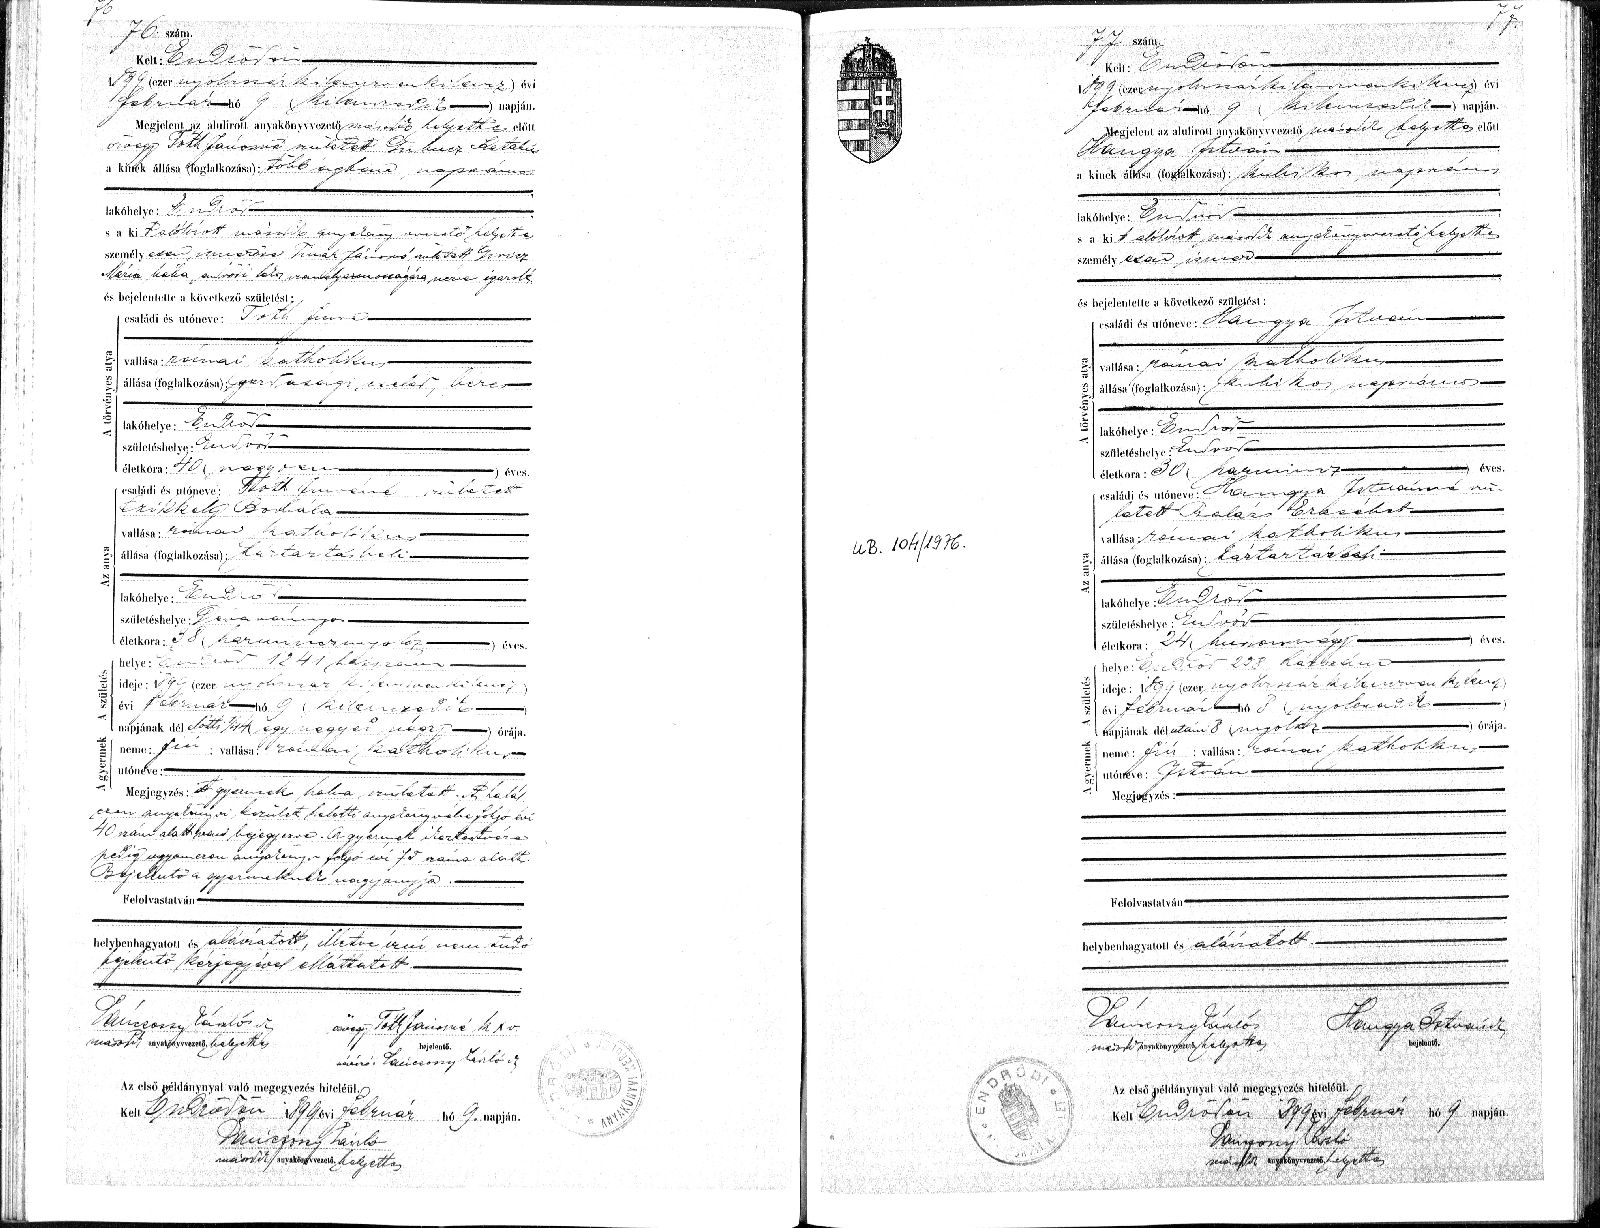 76
76. szám.
Kelt: Endrődön
1899 (ezer nyolcszázkilencvenkilencz) évi
február hó 9 (kilenczedik) napján.
Megjelent az alulirott anyakönyvvezető másodh helyettes előtt
özvegy Tóth Jánosné született
a kinek állása (foglalkozása): napszámos
lakóhelye: Endrőd
s a kit alólirott második anyakönyvvezető helyettes
személyesen Timár Jánosné született
Mária bába, endrődi lakos
és bejelentette a következő születést:
A törvényes atya
családi és utóneve: Tóth Imre
vallása: római katholikus
állása (foglalkozása): gazdasági cseléd, béres
lakóhelye: Endrőd
születéshelye: Endrőd
életkora: 40 (negyven) éves.
Az anya
családi és utóneve: Tóth Imréné született
Borbála
vallása: római katholikus
állása (foglalkozása): háztartásbeli
lakóhelye: Endrőd
születéshelye: Gyéva
életkora: 38 (harmincznyolcz) éves.
A születés
helye: Endrőd 1241 házszám
ideje: 1899 (ezer nyolcszázkilencvenkilencz)
évi február hó 9 (kilenczedik)
napjának dél előtti 1/4 egy negyed négy) órája.
A gyermek
neme: fiú; vallása: római katholikus
utóneve:
Megjegyzés: A gyermek halva született. A halál
ezen anyakönyvi kerület halotti anyakönyvébe folyó évi
40 szám alatt bejegyezve. A gyermek ikertestvére
pedig ugyanezen anyakönyv folyó évi 75 száma alatt.
Bejelentő a gyermeknek nagyanyja.
Felolvastatván
helybenhagyatott és aláiratott, illetve írni nem tudó
bejelentő kézjegyével elláttatott.
Lánczony László
másodh anyakönyvvezető, helyettes
özvegy Tóth Jánosné
bejelentő.
Lánczony László
Az első példánynyal való megegyezés hiteléül.
Kelt Endrődön 1899 évi február hó 9. napján.
Lánczony László
másodh anyakönyvvezető, helyettes
UB. 104/1976.
77
77. szám.
Kelt: Endrődön
1899 (ezer nyolcszázkilencvenkilencz) évi
február hó 9 (kilenczedik) napján.
Megjelent az alulirott anyakönyvvezető másodh helyettes előtt
Hangya István
a kinek állása (foglalkozása): kubikos, napszámos
lakóhelye: Endrőd
s a kit alólirott, második anyakönyvvezető helyettes
személyesen ismer
és bejelentette a következő születést:
A törvényes atya
családi és utóneve: Hangya István
vallása: római katholikus
állása (foglalkozása): kubikos, napszámos
lakóhelye: Endrőd
születéshelye: Endrőd
életkora: 30 (harmincz) éves.
Az anya
családi és utóneve: Hangya Istvánné szü-
letett Kalász Erzsébet
vallása: római katholikus
állása (foglalkozása): háztartásbeli
lakóhelye: Endrőd
születéshelye: Endrőd
életkora: 24 (huszonnégy) éves.
A születés
helye: Endrőd 293 házszám
ideje: 1899 (ezer nyolcszázkilencvenkilencz)
évi február hó 8 (nyolczadik)
napjának dél után 8 (nyolcz) órája.
A gyermek
neme: fiú; vallása: római katholikus
utóneve: István
Megjegyzés:
Felolvastatván
helybenhagyatott és aláiratott
Lánczony László
másodh anyakönyvvezető, helyettes
Hangya István
bejelentő.
Az első példánynyal való megegyezés hiteléül.
Kelt Endrődön 1899 évi február hó 9 napján.
Lánczony László
másodh anyakönyvvezető, helyettes
ENDRŐDI